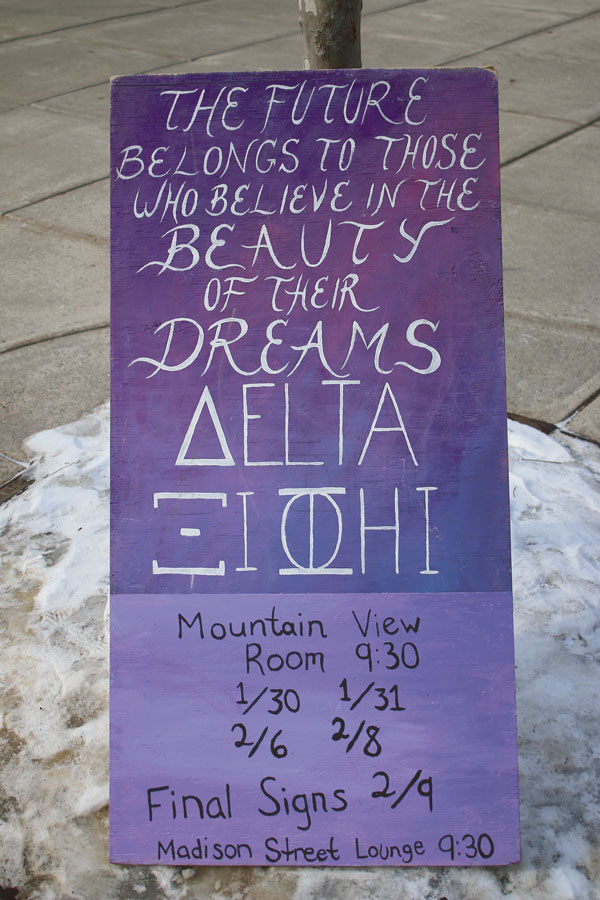 THE FUTURE
BELONGS TO THOSE
WHO BELIEVE IN THE
BEAUTY
OF THEIR
DREAMS
ΔELTA
ΞI ΦHI
Mountain View
Room 9:30
1/30 1/31
2/6 2/8
Final Signs 2/9
Madison Street Lounge 9:30